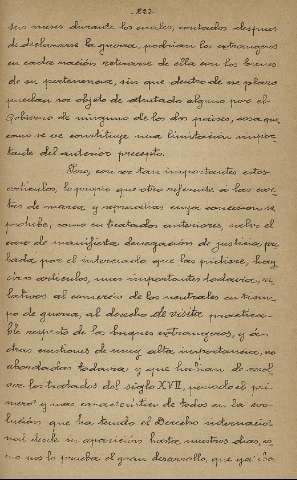 -222-
seis meses durante los cuales, contados despues
de declararse la guerra, podrian los extrangeros
en cada nación retirarse de ella con los bienes
de su pertenencia, sin que dentro de ese plazo
puedan ser objeto de atentado alguno por el
Gobierno de ninguno de los dos paises, cosa que
como se ve constituye una limitacion impor-
tante del anterior precepto.
Pero, con ser tan importantes estos
articulos, lo propio que otro referente á las car-
tas de marca y represalias cuya concesion se
prohibe, como en tratados anteriores, salvo el
caso de manifiesta denegación de justicia, pro-
bada por el interesado que las pidiere, hay
otros articulos, mas importantes todavia, re-
lativos al comercio de los neutrales en tiem-
po de guerra, al derecho de visita practica-
ble respecto de los buques extrangeros, y á
otras cuestiones de muy alta importancia, no
abordadas todavia y que habian de
los tratados del siglo XVII, periodo el pri-
mero y mas caracteristico de todos en la evo-
lución que ha tenido el Derecho internacio-
nal desde su aparición hasta nuestros dias, co-
mo nos lo prueba el gran desarrollo, que ya iba